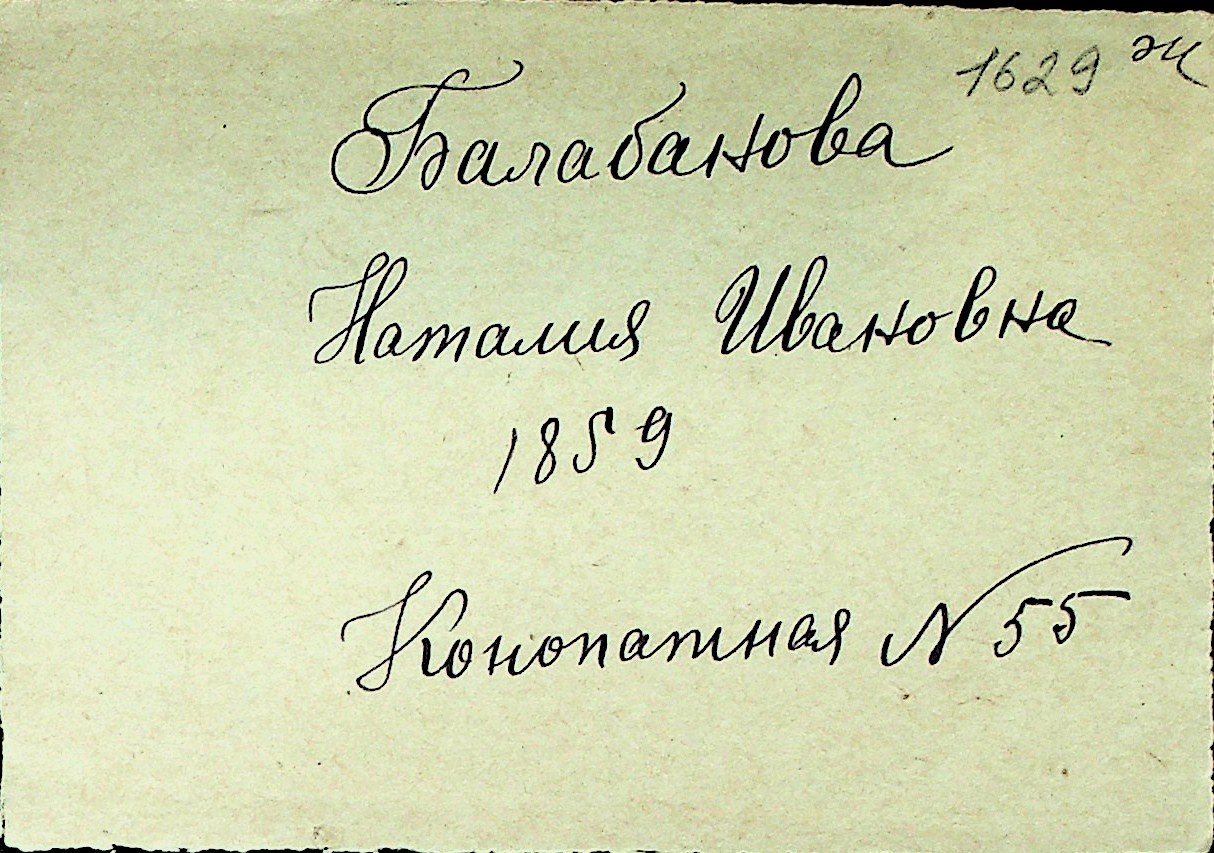 1629 ж
Балабанова
Наталия Ивановна
1859
Конопатная N 55